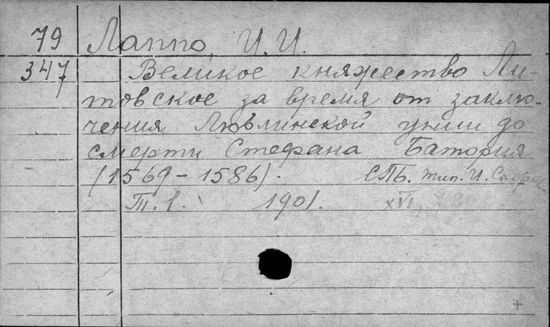 79 Лаппо, И. И.
347 Великое княжество Ли-
товское за время от заклю-
чения Люблинской унии до
смерти Стефана Батория
(1569-1586). СПб. тип. И.
Т. 1. 1901. XVI,